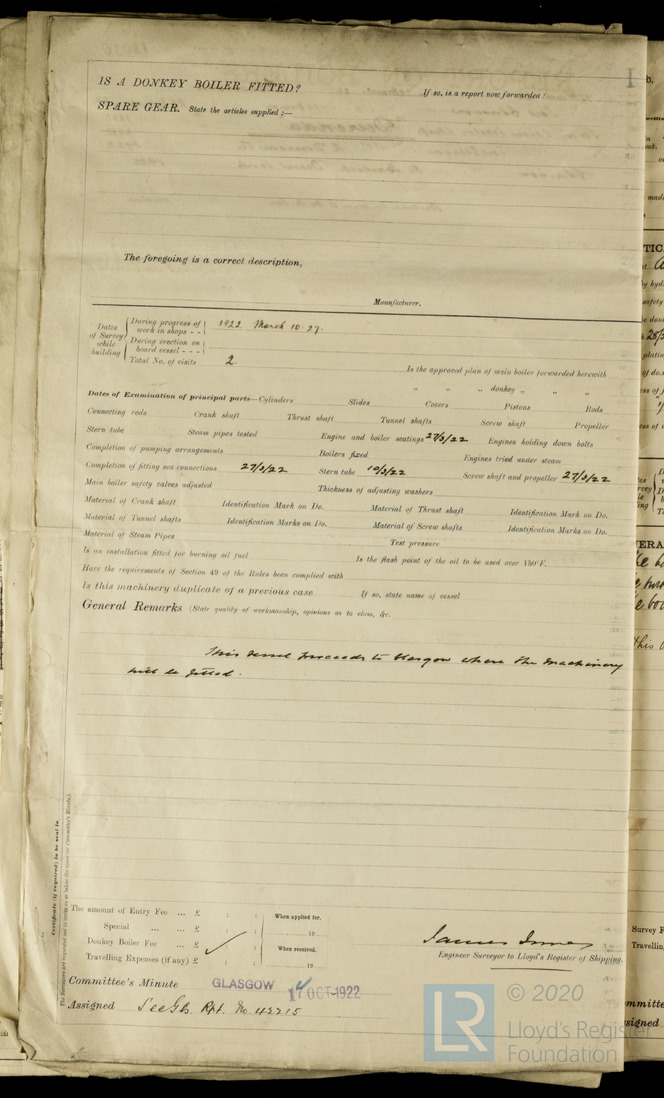 IS A DONKEY BOILER FITTED? If so, is a report now forwarded?
SPARE GEAR. State the articles supplied :—
The foregoing is a correct description,
Manufacturer.
Dates of Survey while building
During progress of work in shops - - 1922 March 10. 27.
During erection on board vessel - - -
Total No. of visits 2
Is the approved plan of main boiler forwarded herewith
" " " donkey " " "
Dates of Examination of principal parts—Cylinders Slides Covers Pistons Rods
Connecting rods Crank shaft Thrust shaft Tunnel shafts Screw shaft Propeller
Stern tube Steam pipes tested Engine and boiler seatings 27/3/22 Engines holding down bolts
Completion of pumping arrangements Boilers fixed Engines tried under steam
Completion of fitting sea connections 27/3/22 Stern tube 10/3/22 Screw shaft and propeller 27/3/22
Main boiler safety valves adjusted Thickness of adjusting washers
Material of Crank shaft Identification Mark on Do. Material of Thrust shaft Identification Mark on Do.
Material of Tunnel shafts Identification Marks on Do. Material of Screw shafts Identification Marks on Do.
Material of Steam Pipes Test pressure
Is an installation fitted for burning oil fuel Is the flash point of the oil to be used over 150°F.
Have the requirements of Section 49 of the Rules been complied with
Is this machinery duplicate of a previous case If so, state name of vessel
General Remarks (State quality of workmanship, opinions as to class, &c.
This vessel proceeds to Glasgow where the machinery
will be fitted.
Certificate (if required) to be sent to
The amount of Entry Fee ... £ : : When applied for.
Special ... £ : : 19
Donkey Boiler Fee ... £ : : When received.
Travelling Expenses (if any) £ : : 19
James Innes
Engineer Surveyor to Lloyd's Register of Shipping.
Committee's Minute GLASGOW 17 OCT 1922
Assigned See Gls. Rpt. No. 42215
LR
© 2020
Lloyd's Register
Foundation